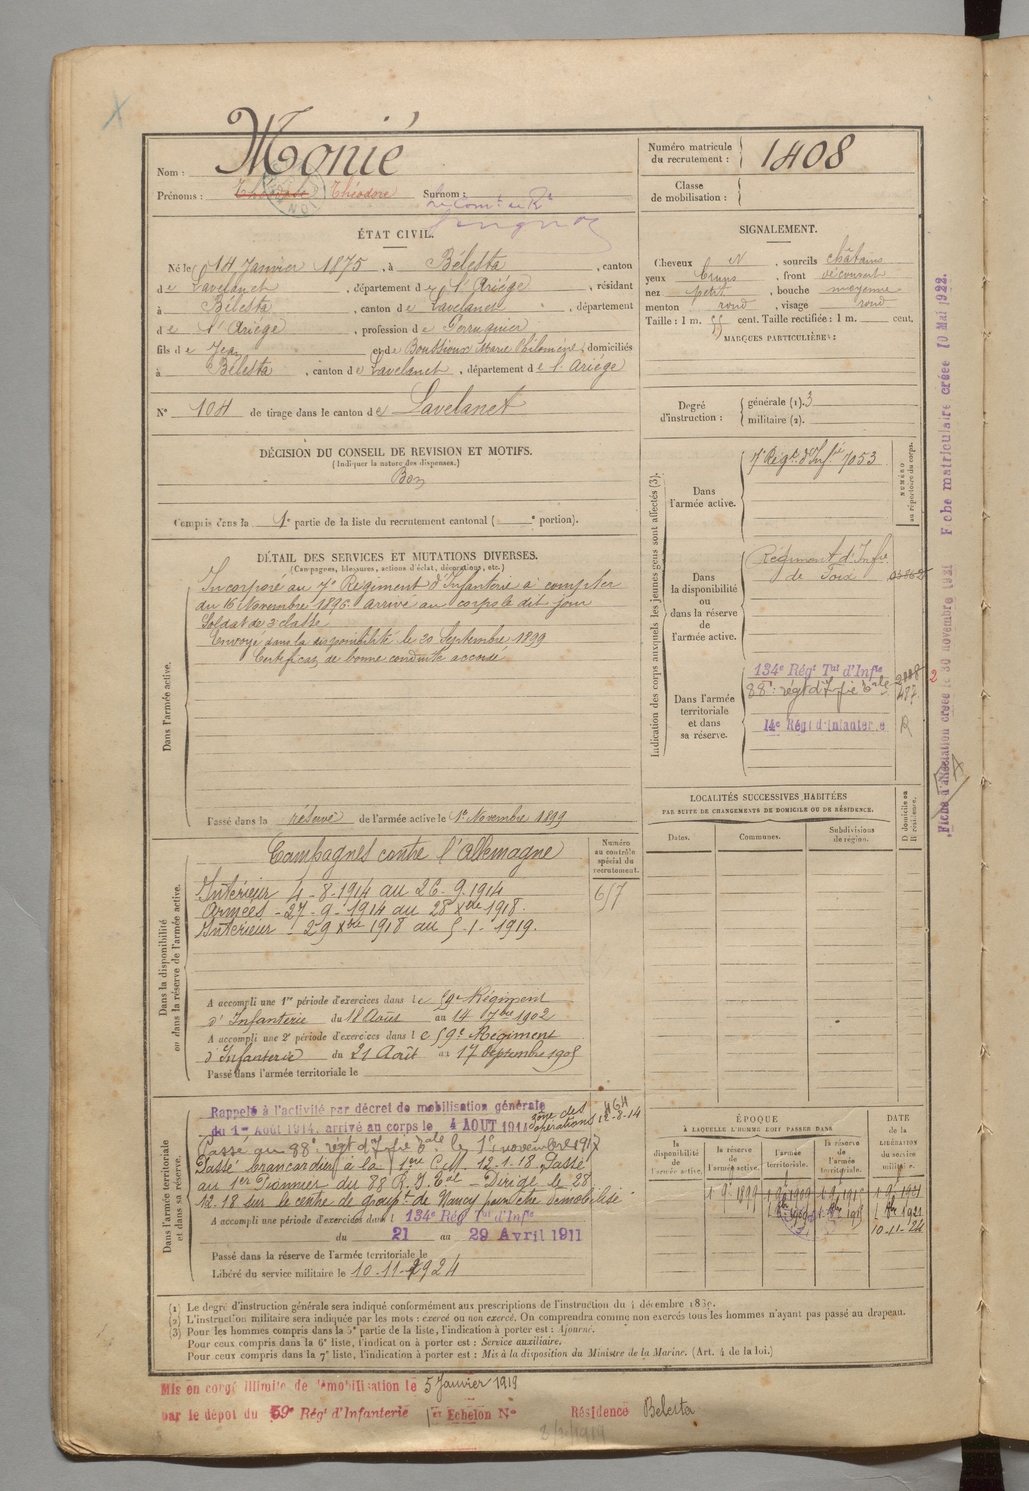 Monié
Nom :
Prénoms : Théodore Théodore Surnom :
Numéro matricule
du recrutement : 1408
Classe
de mobilisation :
ÉTAT CIVIL.
Né le 14 Janvier 1875, à Bélesta, canton
de Lavelanet, département de l'Ariège, résidant
à Bélesta, canton de Lavelanet, département
de l'Ariège, profession de Perruquier
fils de Jean et de Boussioux Marie Philomène, domiciliés
à Bélesta, canton de Lavelanet, département de l'Ariège
N° 104 de tirage dans le canton de Lavelanet
SIGNALEMENT.
Cheveux N, sourcils châtains
yeux bruns, front découvert
nez petit, bouche moyenne
menton rond, visage rond
Taille : 1 m. 55 cent. Taille rectifiée : 1 m. cent.
MARQUES PARTICULIÈRES :
Degré
d'instruction :
générale (1). 3
militaire (2).
DÉCISION DU CONSEIL DE REVISION ET MOTIFS.
(Indiquer la nature des dispenses.)
Bon
Compris dans la 1e partie de la liste du recrutement cantonal ( e portion).
DÉTAIL DES SERVICES ET MUTATIONS DIVERSES.
(Campagnes, blessures, actions d'éclat, décorations, etc.)
Dans l'armée active.
Incorporé au 7e Régiment d'Infanterie à compter
du 16 Novembre 1896 arrivé au corps le dit jour
Soldat de 2e classe
Envoyé dans la disponibilité le 30 Septembre 1899
Certificat de bonne conduite accordé
Passé dans la réserve de l'armée active le 1er Novembre 1899
Indication des corps auxquels les jeunes gens sont affectés (3).
NUMÉRO
au répertoire du corps.
Dans
l'armée active.
7e Régt d'Infie 7053
Dans
la disponibilité
ou
dans la réserve
de
l'armée active.
Régiment d'Infie
de Foix
Dans l'armée
territoriale
et dans
sa réserve.
134e Régt Tal d'Infie
88e régt d'Infie tale 487
14e Régt d'Infanterie
LOCALITÉS SUCCESSIVES HABITÉES
PAR SUITE DE CHANGEMENTS DE DOMICILE OU DE RÉSIDENCE.
Dates.
Communes.
Subdivisions
de région.
D. domicile ou
R. résidence.
Dans la disponibilité
ou dans la réserve de l'armée active.
Campagnes contre l'Allemagne
Numéro
au contrôle
spécial du
recrutement.
617
Intérieur 4-8-1914 au 26-9-1914
Armées - 27-9-1914 au 28 Xbre 1918.
Intérieur - 29 Xbre 1918 au 5-1-1919.
A accompli une 1re période d'exercices dans le 59e Régiment
d'Infanterie du 18 Août au 14 7bre 1902
A accompli une 2e période d'exercices dans le 59e Régiment
d'Infanterie du 21 Août au 17 Septembre 1905
Passé dans l'armée territoriale le
Dans l'armée territoriale
et dans sa réserve.
Rappelé à l'activité par décret de mobilisation générale
du 1er Août 1914, arrivé au corps le, 4 AOUT 1914
zône des
opérations
12-8-14
Passé au 88e régt d'Infie tale le 1er novembre 1917
Passé brancardier à la 1ère Cie le 12.1.18. Passé
au 1er Pionnier du 88 R.I.Tal - Dirigé le 28
12.18 sur le centre de groupt de Nancy pour être démobilisé
A accompli une période d'exercices dans l 134e Rég Tal d'Infie
du 21 au 29 Avril 1911
Passé dans la réserve de l'armée territoriale le
Libéré du service militaire le 10-11-1924
ÉPOQUE
À LAQUELLE L'HOMME DOIT PASSER DANS
la
disponibilité
de
l'armée active.
la
réserve de
l'armée active.
l'armée
territoriale.
la réserve
de
l'armée
territoriale.
DATE
de la
LIBÉRATION
du service
militaire.
1 9e 1899 1 9e 1909 1 9e 1915 1 9e 1921
10-11-24
(1) Le degré d'instruction générale sera indiqué conformément aux prescriptions de l'instruction du 4 décembre 1889.
(2) L'instruction militaire sera indiquée par les mots : exercé ou non exercé. On comprendra comme non exercés tous les hommes n'ayant pas passé au drapeau.
(3) Pour les hommes compris dans la 5e partie de la liste, l'indication à porter est : Ajourné.
Pour ceux compris dans la 6e liste, l'indication à porter est : Service auxiliaire.
Pour ceux compris dans la 7e liste, l'indication à porter est : Mis à la disposition du Ministre de la Marine. (Art. 4 de la loi.)
Mis en congé illimité de démobilisation le 5 Janvier 1919
par le dépôt du 59e Régt d'Infanterie 1er Echelon N° Résidence Belesta
Fiche d'affectation créée le 30 novembre 1921 Fiche matriculaire créée 10 Mai 1922.